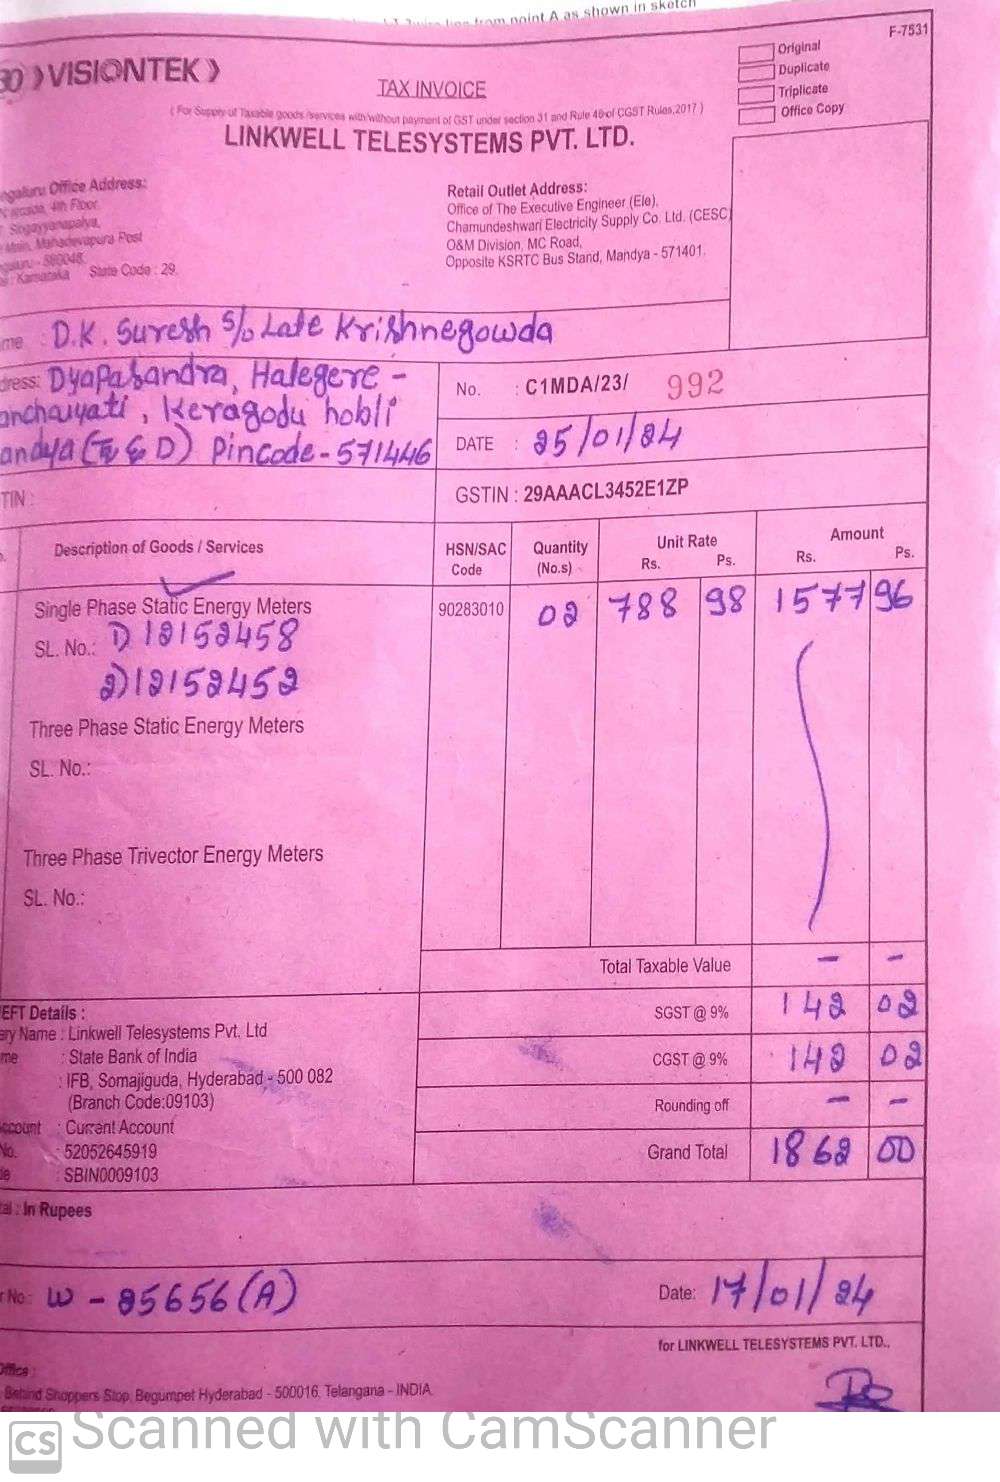 as shown in sketch
F-7531
VISIONTEK
Original
Duplicate
Triplicate
Office Copy
TAX INVOICE
( For Supply of Taxable goods /services with/without payment of GST under section 31 and Rule 46 of CGST Rules,2017 )
LINKWELL TELESYSTEMS PVT. LTD.
Office Address:
4th Floor,
Singayyanapalya,
Main, Mahadevapura Post
560048,
Karnataka State Code : 29.
Retail Outlet Address:
Office of The Executive Engineer (Ele),
Chamundeshwari Electricity Supply Co. Ltd. (CESC)
O&M Division, MC Road,
Opposite KSRTC Bus Stand, Mandya - 571401.
me : D.K. Suresh S/o Late Krishnegowda
dress: Dyapasandra, Halegere -
anchaiyati, Keragodu hobli
andya (T & D) Pincode - 571446
No. : C1MDA/23/ 992
DATE : 25/01/24
TIN :
GSTIN : 29AAACL3452E1ZP
Description of Goods / Services HSN/SAC Code Quantity (No.s) Unit Rate Rs. Ps. Amount Rs. Ps.
Single Phase Static Energy Meters 90283010 02 788 98 1577 96
SL. No.: 1) 12152458
2) 12152452
Three Phase Static Energy Meters
SL. No.:
Three Phase Trivector Energy Meters
SL. No.:
Total Taxable Value - -
EFT Details :
SGST @ 9% 142 02
ary Name : Linkwell Telesystems Pvt. Ltd
me : State Bank of India
CGST @ 9% 142 02
: IFB, Somajiguda, Hyderabad - 500 082
(Branch Code:09103)
Rounding off - -
ccount : Current Account
No. : 52052645919
Grand Total 1862 00
de : SBIN0009103
tal : In Rupees
r No: W - 25656 (A)
Date: 17/01/24
for LINKWELL TELESYSTEMS PVT. LTD.,
Office :
Behind Shoppers Stop, Begumpet Hyderabad - 500016. Telangana - INDIA.
CS Scanned with CamScanner